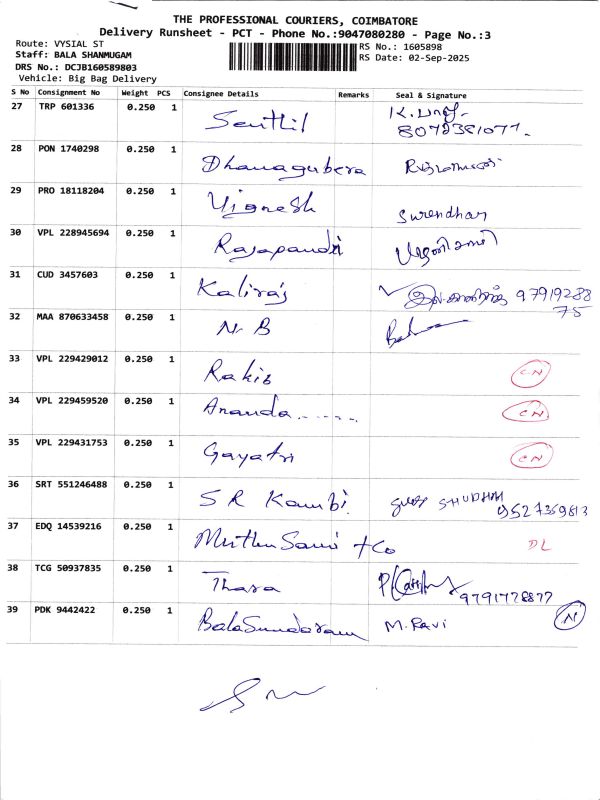 THE PROFESSIONAL COURIERS, COIMBATORE
Delivery Runsheet - PCT - Phone No.:9047080280 - Page No.:3
Route: VYSIAL ST
Staff: BALA SHANMUGAM
DRS No.: DCJB160589803
Vehicle: Big Bag Delivery
RS No.: 1605898
RS Date: 02-Sep-2025
S No Consignment No Weight PCS Consignee Details Remarks Seal & Signature
27 TRP 601336 0.250 1 Senthil
8072381077.
28 PON 1740298 0.250 1 Dhanagubera
29 PRO 18118204 0.250 1 Vignesh Surendhar
30 VPL 228945694 0.250 1 Rajapandi
31 CUD 3457603 0.250 1 Kaliraj 97919288
75
32 MAA 870633458 0.250 1 N. B
33 VPL 229429012 0.250 1 Rakib CN
34 VPL 229459520 0.250 1 Ananda...... CN
35 VPL 229431753 0.250 1 Gayatri CN
36 SRT 551246488 0.250 1 S R Kambi
37 EDQ 14539216 0.250 1 Muthu Sami + Co DL
38 TCG 50937835 0.250 1 Thara 9791728877
39 PDK 9442422 0.250 1 BalaSundaram M. Ravi N